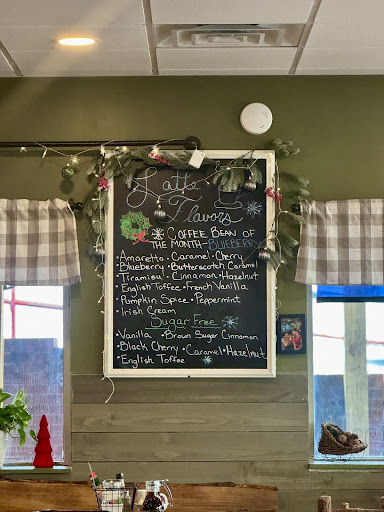 Latte
Flavors
* COFFEE BEAN OF
THE MONTH-BLUEBERRY
Amoretto • Caramel • Cherry
• Blueberry • Butterscotch Caramel
Tiramisu • Cinnamon • Hazelnut
• English Toffee • French Vanilla
• Pumpkin Spice • Peppermint
• Irish Cream
Sugar Free
Vanilla • Brown Sugar Cinnamon
• Black Cherry • Caramel • Hazelnut
English Toffee